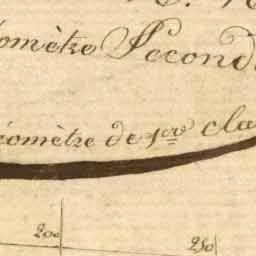 omètre Second
éomètre de 1re cla
200 250